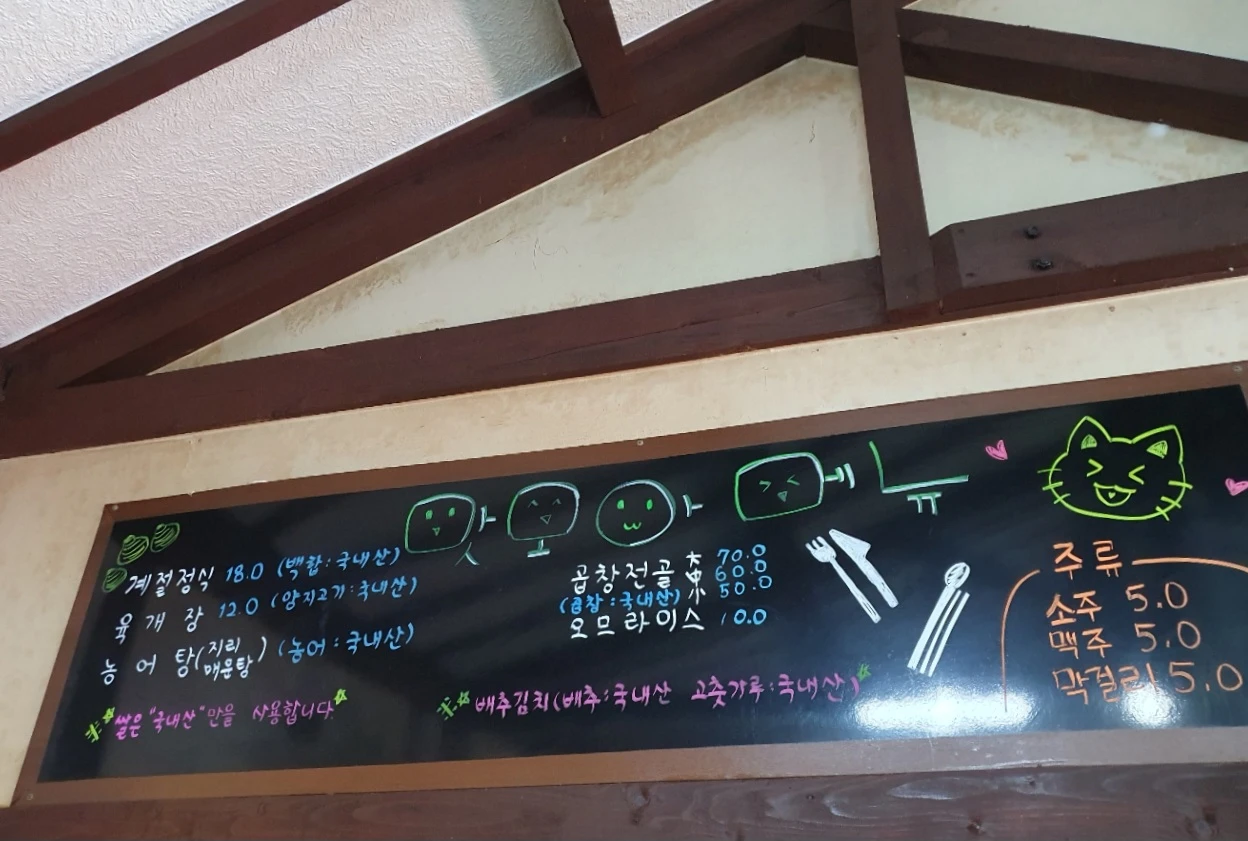 맛있는 메뉴
계절정식 18.0 (백합:국내산)
육개장 12.0 (양지고기:국내산)
농어탕(지리 매운탕) (농어:국내산)
쌀은 "국내산"만을 사용합니다
곱창전골 大 70.0
中 60.0
小 50.0
(곱창:국내산)
오므라이스 10.0
배추김치(배추:국내산 고춧가루:국내산)
주류
소주 5.0
맥주 5.0
막걸리 5.0